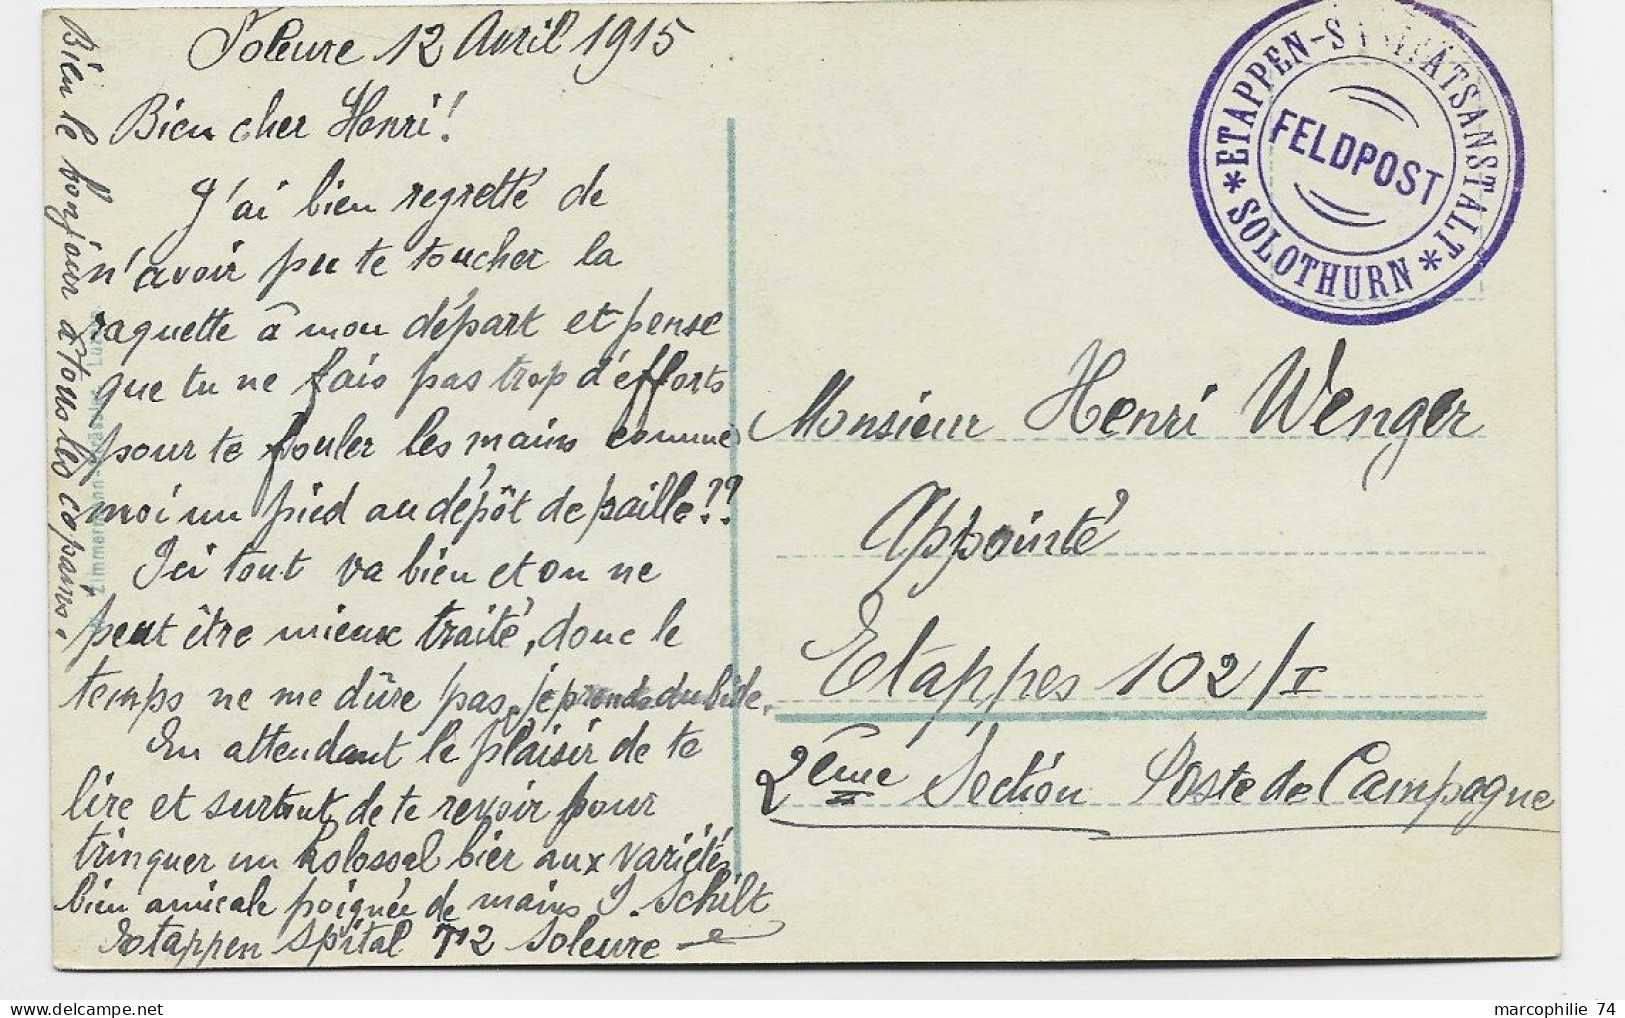 Soleure 12 Avril 1915
Bien cher Henri!
J'ai bien regretté de
n'avoir pu te toucher la
raquette à mon départ et pense
que tu ne fais pas trop d'efforts
pour te fouler les mains comme
moi un pied au dépôt de paille??
Ici tout va bien et on ne
peut être mieux traité, donc le
temps ne me dûre pas, je prends du bide.
En attendant le plaisir de te
lire et surtout de te revoir pour
trinquer un kolossal bier aux variétés
bien amicale poignée de mains J. Schilt
Etappen Spital 72 Soleure
Bien le bonjour à tous les copains.
Zimmermann-Strässler, Luzern
ETAPPEN-SANITÄTSANSTALT
* SOLOTHURN *
FELDPOST
Monsieur Henri Wenger
Appointé
Etappes 102/I
2ème Section Poste de Campagne
marcophilie 74